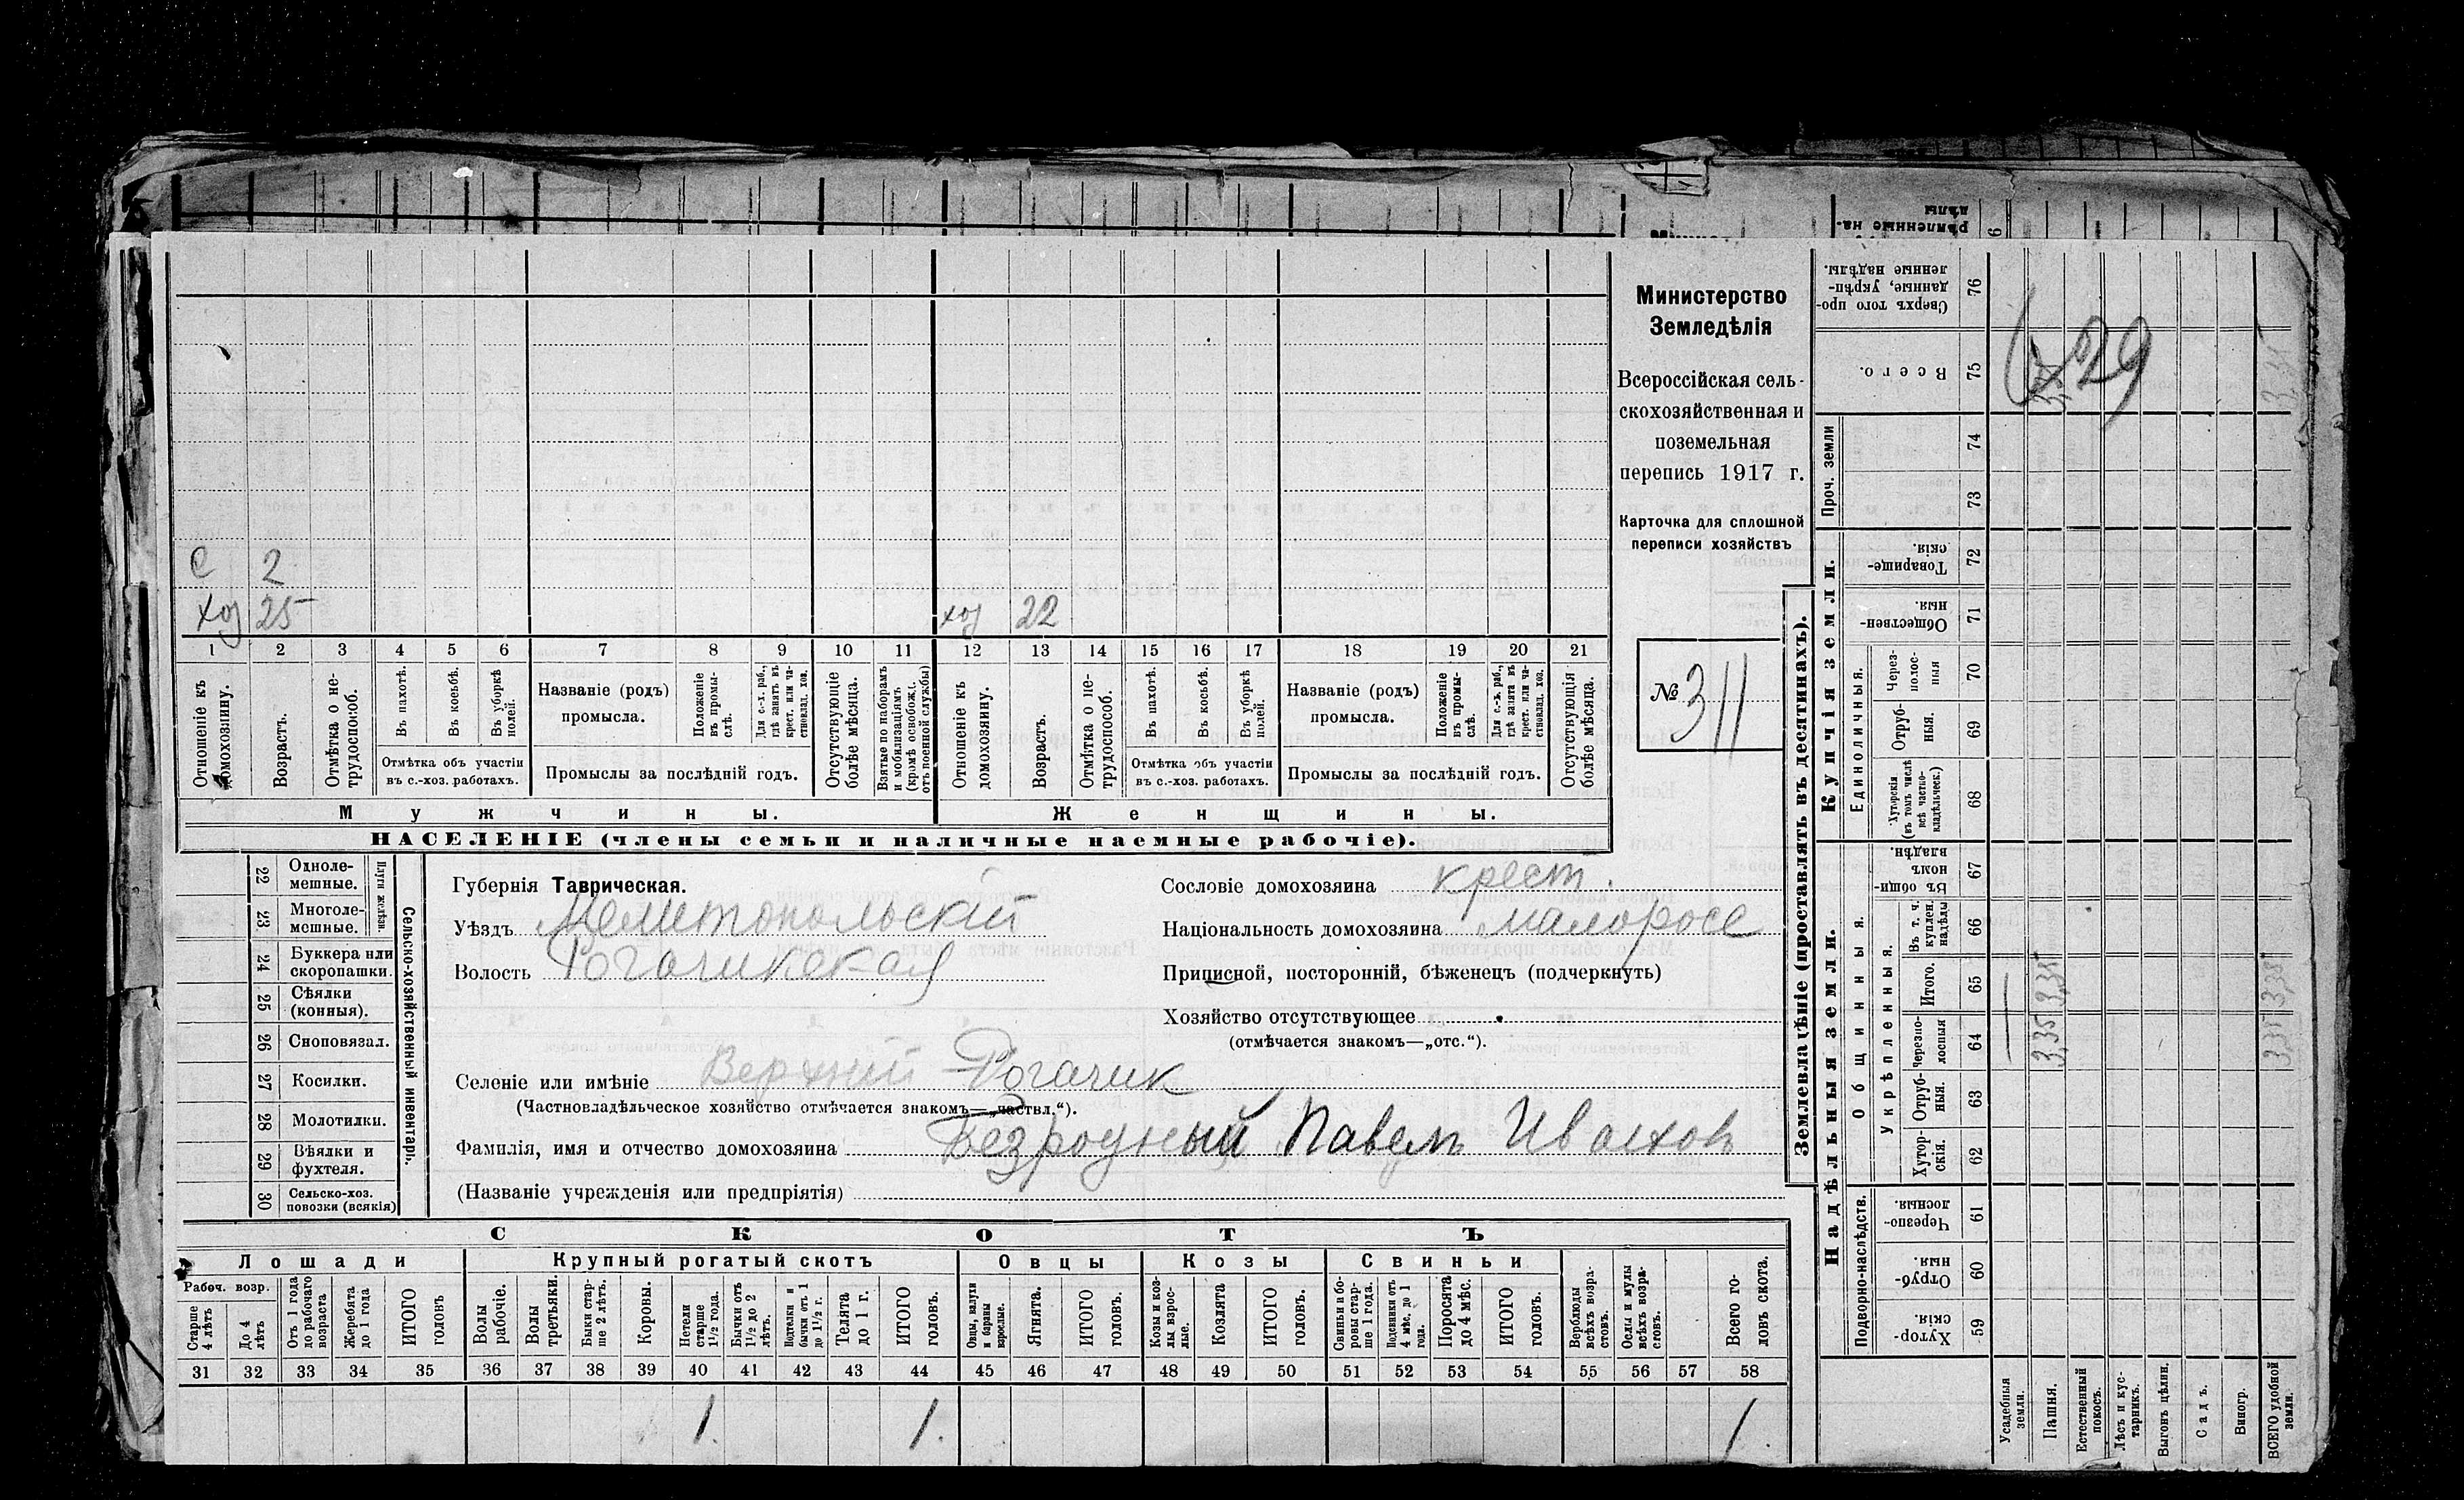 Министерство
Земледѣлія
Всероссійская сель-
скохозяйственная и
поземельная
перепись 1917 г.
Карточка для сплошной
переписи хозяйствъ
№ 311
с 2
хоз 25 хоз 22
1 2 3 4 5 6 7 8 9 10 11 12 13 14 15 16 17 18 19 20 21
Отношеніе къ домохозяину.
Возрастъ.
Отмѣтка о не-трудоспособ.
Въ пахотѣ.
Въ косьбѣ.
Въ уборкѣ полей.
Отмѣтка объ участіи
въ с.-хоз. работахъ.
Названіе (родъ)
промысла.
Положеніе въ промы-слѣ.
Для с.-х. раб., гдѣ занятъ въ крест. или ча-стновлад. хоз.
Промыслы за послѣдній годъ.
Отсутствующіе болѣе мѣсяца.
Взятые по наборамъ и мобилизаціямъ (кромѣ освобожд. отъ военной службы)
Отношеніе къ домохозяину.
Возрастъ.
Отмѣтка о не-трудоспособ.
Въ пахотѣ.
Въ косьбѣ.
Въ уборкѣ полей.
Отмѣтка объ участіи
въ с.-хоз. работахъ.
Названіе (родъ)
промысла.
Положеніе въ промы-слѣ.
Для с.-х. раб., гдѣ занята въ крест. или ча-стновлад. хоз.
Промыслы за послѣдній годъ.
Отсутствующія болѣе мѣсяца.
Мужчины. Женщины.
НАСЕЛЕНІЕ (члены семьи и наличные наемные рабочіе).
22 Одноле-мешные.
23 Многоле-мешные.
Плуги желѣзн.
24 Буккера или скоропашки.
25 Сѣялки (конныя).
26 Сноповязал.
27 Косилки.
28 Молотилки.
29 Вѣялки и фухтеля.
30 Сельско-хоз. повозки (всякія)
Сельско-хозяйственный инвентарь.
Губернія Таврическая.
Уѣздъ Мелитопольскій
Волость Рогачикская
Сословіе домохозяина крест.
Національность домохозяина малоросс
Приписной, посторонній, бѣженецъ (подчеркнуть)
Хозяйство отсутствующее
(отмѣчается знакомъ—„отс.“).
Селеніе или имѣніе Верхний Рогачик
(Частновладѣльческое хозяйство отмѣчается знакомъ—„частвл.“).
Фамилія, имя и отчество домохозяина Безродный Павелъ Иванов
(Названіе учрежденія или предпріятія)
СКОТЪ
Лошади Крупный рогатый скотъ Овцы Козы Свиньи
Рабоч. возр.
Старше 4 лѣтъ
До 4 лѣтъ
Отъ 1 года до рабочаго возраста
Жеребята до 1 года
ИТОГО головъ
Волы рабочіе.
Волы третьяки.
Быки стар-ше 2 лѣтъ.
Коровы.
Нетели старше 1½ года.
Бычки отъ 1½ до 2 лѣтъ.
Подтелки и бычки отъ 1 до 1½ г.
Телята до 1 г.
ИТОГО головъ.
Овцы, валухи и бараны взрослые.
Ягнята.
ИТОГО головъ.
Козы и коз-лы взрос-лые.
Козлята
ИТОГО головъ.
Свиньи и бо-ровы стар-ше 1 года.
Подсвинки отъ 4 мѣс. до 1 года.
Поросята до 4 мѣс.
ИТОГО головъ.
Верблюды всѣхъ возра-стовъ.
Ослы и мулы всѣхъ возра-стовъ.
Всего го-ловъ скота.
31 32 33 34 35 36 37 38 39 40 41 42 43 44 45 46 47 48 49 50 51 52 53 54 55 56 57 58
1 1. 1.
Землевладѣніе (проставлять въ десятинахъ).
Надѣльныя земли.
Купчія земли.
Подворно-наслѣдств.
Общинныя.
Укрѣпленныя.
Единоличныя.
Проч. земли
Сверхъ того про-данные, укрѣп-ленные надѣлы. 76
Всего. 75
74
73
Товарище-скія. 72
Обществен-ныя. 71
Через-полос-ныя 70
Отруб-ныя. 69
Хуторскія (въ томъ числѣ всѣ частно-владѣльческ.) 68
Въ общи-номъ владѣн. 67
Въ т. ч. куплен. надѣлы 66
Итого. 65
Черезпо-лосныя 64
Отруб-ныя. 63
Хутор-скія. 62
Черезпо-лосныя. 61
Отруб-ныя. 60
Хутор-скія. 59
29
3,35 3,35 3,35
3,35 3,35 3,35
Усадебныя земли.
Пашня.
Естественный покосъ.
Лѣсъ и кус-тарникъ.
Выгонъ цѣлин.
Садъ.
Виногр.
ВСЕГО удобной земли.